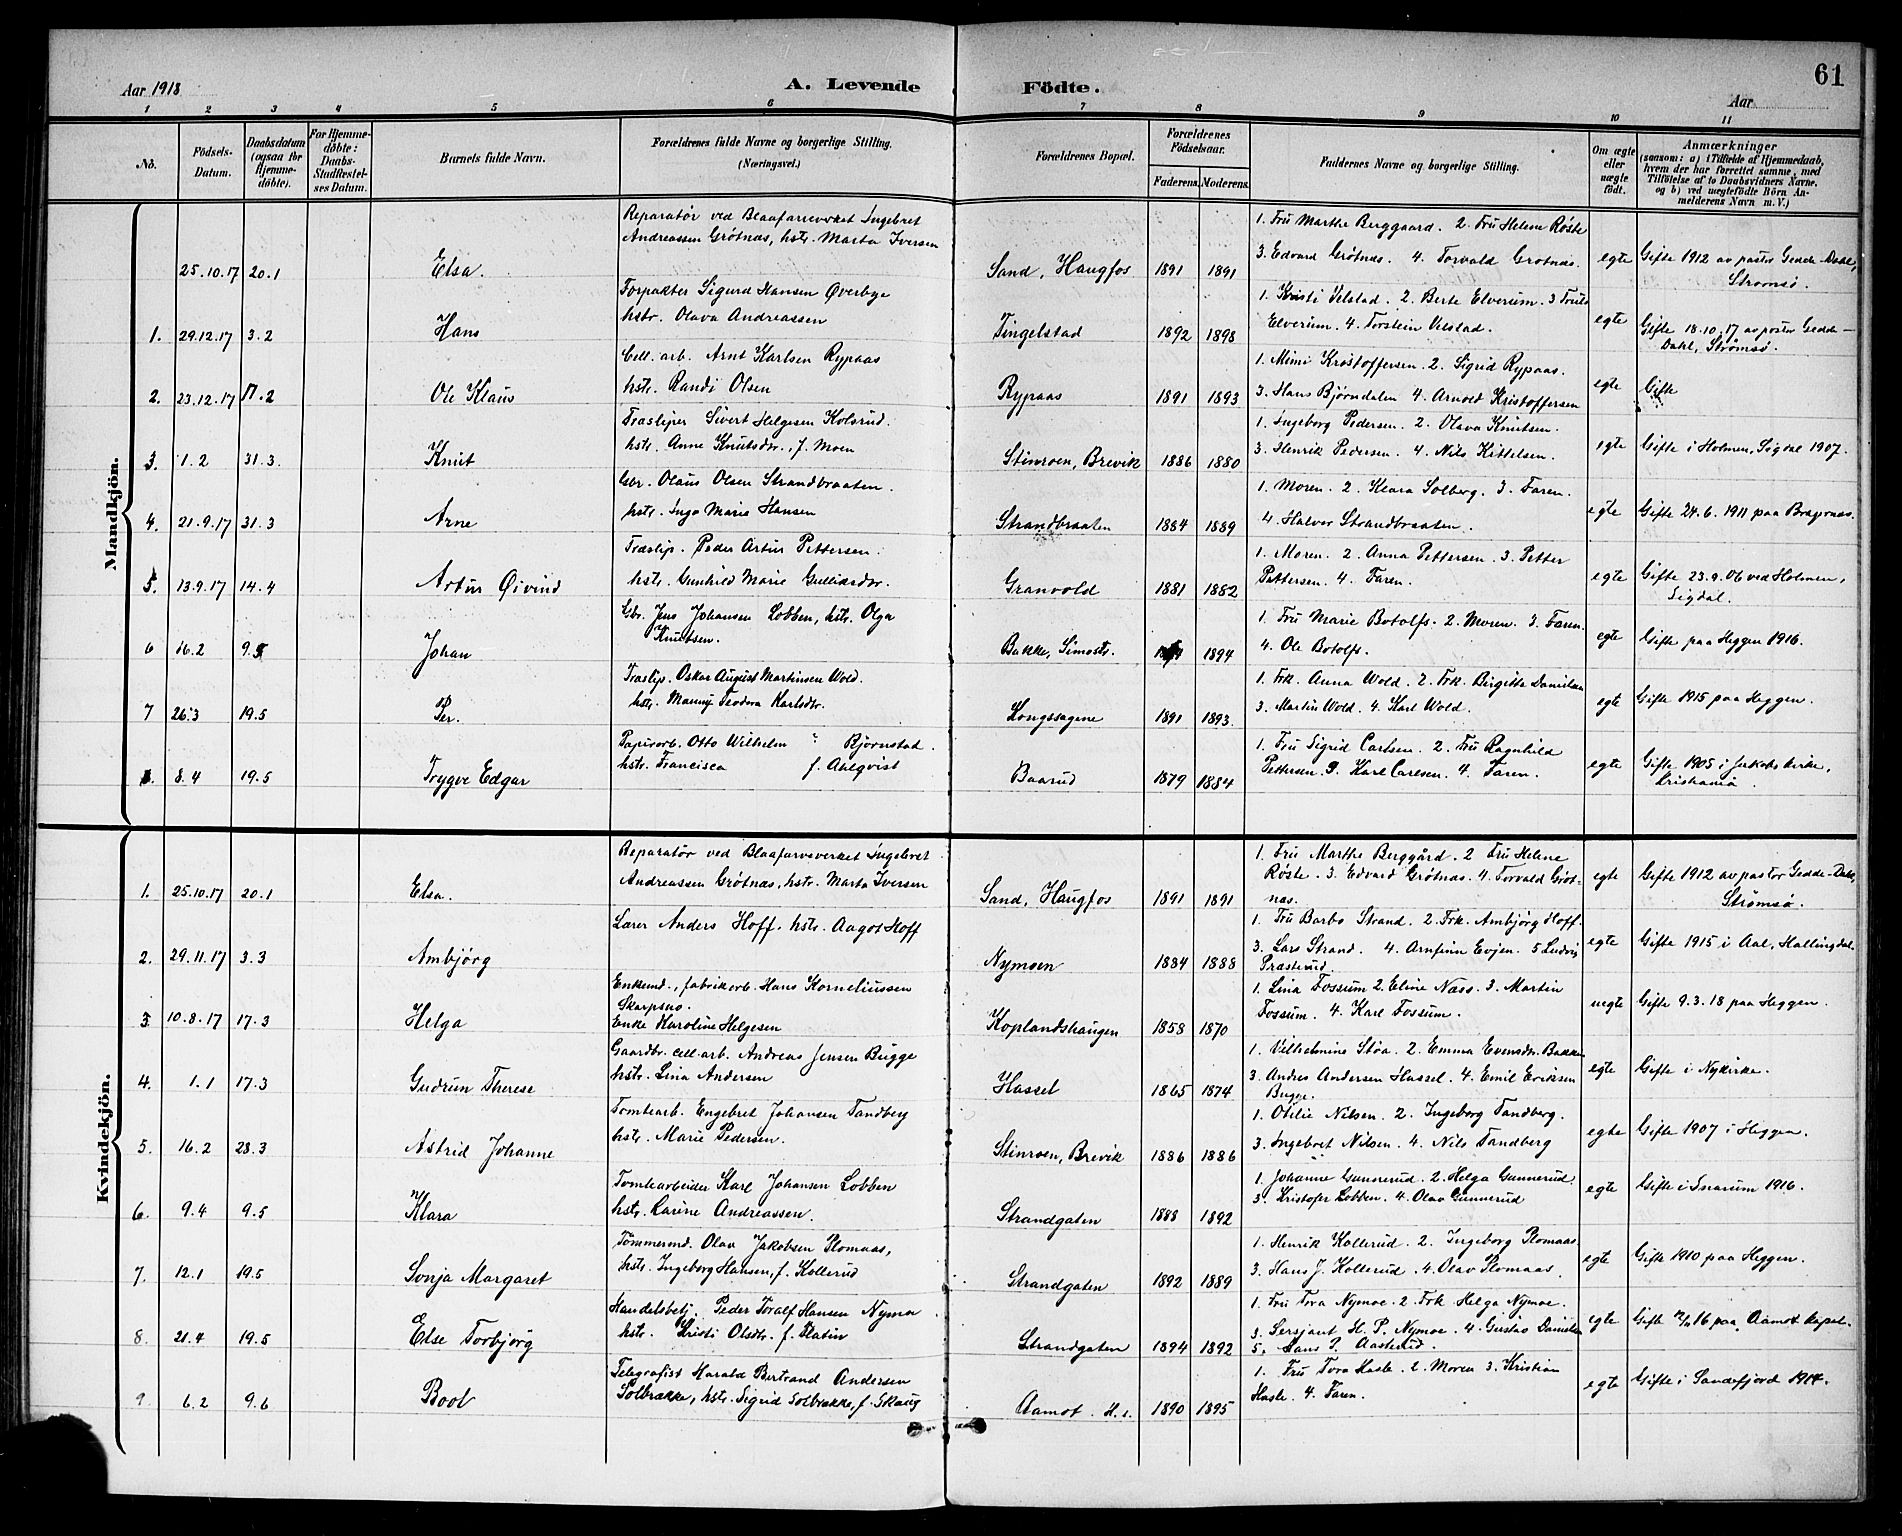 61
Aar 1918
A. Levende Födte.
Aar
1 2 3 4 5 6 7 8 9 10 11
No.
Födsels-Datum.
Daabsdatum (ogsaa for Hjemmedöbte).
For Hjemmedöbte: Daabs-Stadfæstelses Datum.
Barnets fulde Navn.
Forældrenes fulde Navne og borgerlige Stilling. (Næringsvei.)
Forældrenes Bopæl.
Forældrenes Födselsaar.
Faderens. Moderens.
Faddernes Navne og borgerlige Stilling.
Om ægte eller uægte födt.
Anmærkninger
(saasom: a) i Tilfælde af Hjemmedaab, hvem der har forrettet samme, med Tilföielse af to Daabsvidners Navne, og b) ved uægtefödte Börn Anmelderens Navn m. V.)
Mandkjön.
Reparatør ved Blaafarveverket Ingebret 1. Fru Marthe Berggaard. 2. Fru Helene Røste
Andreassen Grøtnæs, hstr. Marta Iversen
25.10.17 20.1 Elsa. Sand, Haugfos 1891 1891 3. Edvard Grøtnæs. 4. Torvald Grøtnæs. egte Gifte 1912 av pastor Gedde-Dahl, Strømsø.
Forpakter Sigurd Hansen Øverbye 1. Kristi Velstad. 2. Berte Elverum. 3 Truls
hstr. Olava Andreassen
1. 29.12.17 3.2 Hans Tingelstad 1892 1898 Elverum. 4. Torstein Velstad. egte Gifte 18.10.17 av pastor Gedde-Dahl, Strømsø.
Cell. arb. Arnt Karlsen Rypaas 1. Mimi Kristoffersen. 2. Sigrid Rypaas.
2. 23.12.17 17.2 Ole Klaus hstr. Randi Olsen Rypaas 1891 1893 3. Hans Bjørndalen 4. Arnold Kristoffersen egte Gifte
Træsliper Sivert Helgesen Kolsrud. 1. Ingeborg Pedersen. 2. Olava Knutsen.
3. 1.2 31.3. Knut hstr. Anne Knutsdtr., f. Moen Stinroen, Brevik 1886 1880 3. Henrik Pedersen. 4. Nils Kittelsen. egte Gifte i Holmen, Sigdal 1907.
Gbr. Olaus Olsen Strandbraaten. 1. Moren. 2. Klara Solberg. 3. Faren.
4. 21.9.17 31.3 Arne hstr. Inga Marie Hansen Strandbraaten 1884 1889 4. Halvor Strandbraaten. egte Gifte 24.6.1911 paa Bragernæs.
Træslip. Peder Artur Pettersen. 1. Moren. 2. Anna Pettersen. 3. Petter
5. 13.9.17 14.4 Artur Øivind hstr. Gunhild Marie Gulliksdtr. Granvold 1881 1882 Pettersen. 4. Faren. egte Gifte 23.9.06 ved Holmen, Sigdal.
Gbr. Jens Johansen Lobben, hstr. Olga 1. Fru Marie Botolfs. 2. Moren. 3. Faren.
Knutsen.
6 16.2 9.5 Johan Bakke, Simostr. 1894 4. Ole Botolfs. egte Gifte paa Heggen 1916.
Træslip. Oskar August Martinsen Wold. 1. Frk. Anna Wold. 2. Frk. Birgitta Danielsen
7 26.3 19.5 Per. hstr. Teodora Karlsdtr. Kongssagene 1891 1893. 3. Martin Wold. 4. Karl Wold. egte Gifte 1915 paa Heggen.
Papirarb. Otto Wilhelm Bjørnstad. 1. Fru Sigrid Carlsen. 2. Fru Ragnhild
hstr. Francisca f. Ahlqvist
8.4 19.5 Trygve Edgar Baarud 1879 1884 Pettersen. 3. Karl Carlsen. 4. Faren. egte Gifte 1905 i Jakobs kirke, Kristiania.
Kvindekjön.
Reparatør ved Blaafarveverket Ingebret 1. Fru Marthe Berggård. 2 Fru Helene
1. 25.10.17 20.1 Elsa. Andreassen Grøtnæs, hstr. Marta Iversen Sand, Haugfos 1891 1891 Røste. 3. Edvard Grøtnæs. 4. Torvald Grøtnæs. egte Gifte 1912 av pastor Gedde-Dahl, Strømsø.
Lærer Anders Hoff. hstr. Aagot Hoff 1. Fru Barbo Strand. 2. Frk. Ambjørg Hoff.
2. 29.11.17 3.3 Ambjørg Nymoen 1884 1888 3. Lars Strand. 4. Arnfinn Evjen. 5 Ludvig Præsterud. egte Gifte 1915 i Aal, Hallingdal.
Enkemd., fabrikarb. Hans Korneliussen 1. Lina Fossum 2. Eline Næss. 3. Martin
Skarpsno.
3. 10.8.17 17.3 Helga Enke Karoline Helgesen Koplandshaugen 1858 1870 Fossum. 4. Karl Fossum. uegte Gifte 9.3.18 paa Heggen.
Gaardbr. cell. arb. Andreas Jensen Bugge 1. Vilhelmine Støa. 2. Emma Evensdtr. Bakken
4. 1.1 17.3 Gudrun Therese hstr. Lina Andersen Hassel 1865 1874 3. Andres Andersen Hassel. 4. Emil Eriksen Bugge. egte Gifte i Nykirke.
Tomtearb. Engebret Johansen Tandberg 1. Otilie Nilsen. 2. Ingeborg Tandberg.
5. 16.2 28.3 Astrid Johanne hstr. Marie Pedersen. Stinroen, Brevik 1886 1886 3. Ingebret Nilsen. 4. Nils Tandberg egte Gifte 1907 i Heggen.
Tomtearbeider Karl Johansen Lobben 1. Johanne Gunnerud. 2. Helga Gunnerud.
6. 9.4 9.5 Klara hstr. Karine Andreassen. Strandgaten 1888 1892 3. Kristofer Lobben. 4. Olav Gunnerud egte Gifte i Snarum 1916.
Tømmermd. Olav Jakobsen Plomaas, 1. Henrik Kollerud. 2. Ingeborg Plomaas.
7. 12.1 19.5 Sonja Margaret hstr. Ingeborg Hansen, f. Kollerud Strandgaten 1892 1889 3. Hans J. Kollerud. 4. Olav Plomaas. egte Gifte 1910 paa Heggen.
Handelsbetj. Peder Toralf Hansen Nymoe. 1. Fru Tora Nymoe. 2. Frk Helga Nymoe.
8. 21.4 19.5 Else Torbjørg hstr. Kristi Olsdtr. f. Strandgaten 1894 1892 3. Sersjant H. P. Nymoe. 4. Gustav Danielsen 5. Hans P. Aasterud. egte Gifte 16 paa Aamot kapel.
Telegrafist Harald Bertrand Andersen 1. Fru Tora Hasle. 2. Moren 3. Kristian
9. 6.2 9.6 Bool Solbrække, hstr. Sigrid Solbrække, f. Skaug Aamot. H. s. 1890 1895 Hasle. 4. Faren. egte Gifte i Sandefjord 1914.